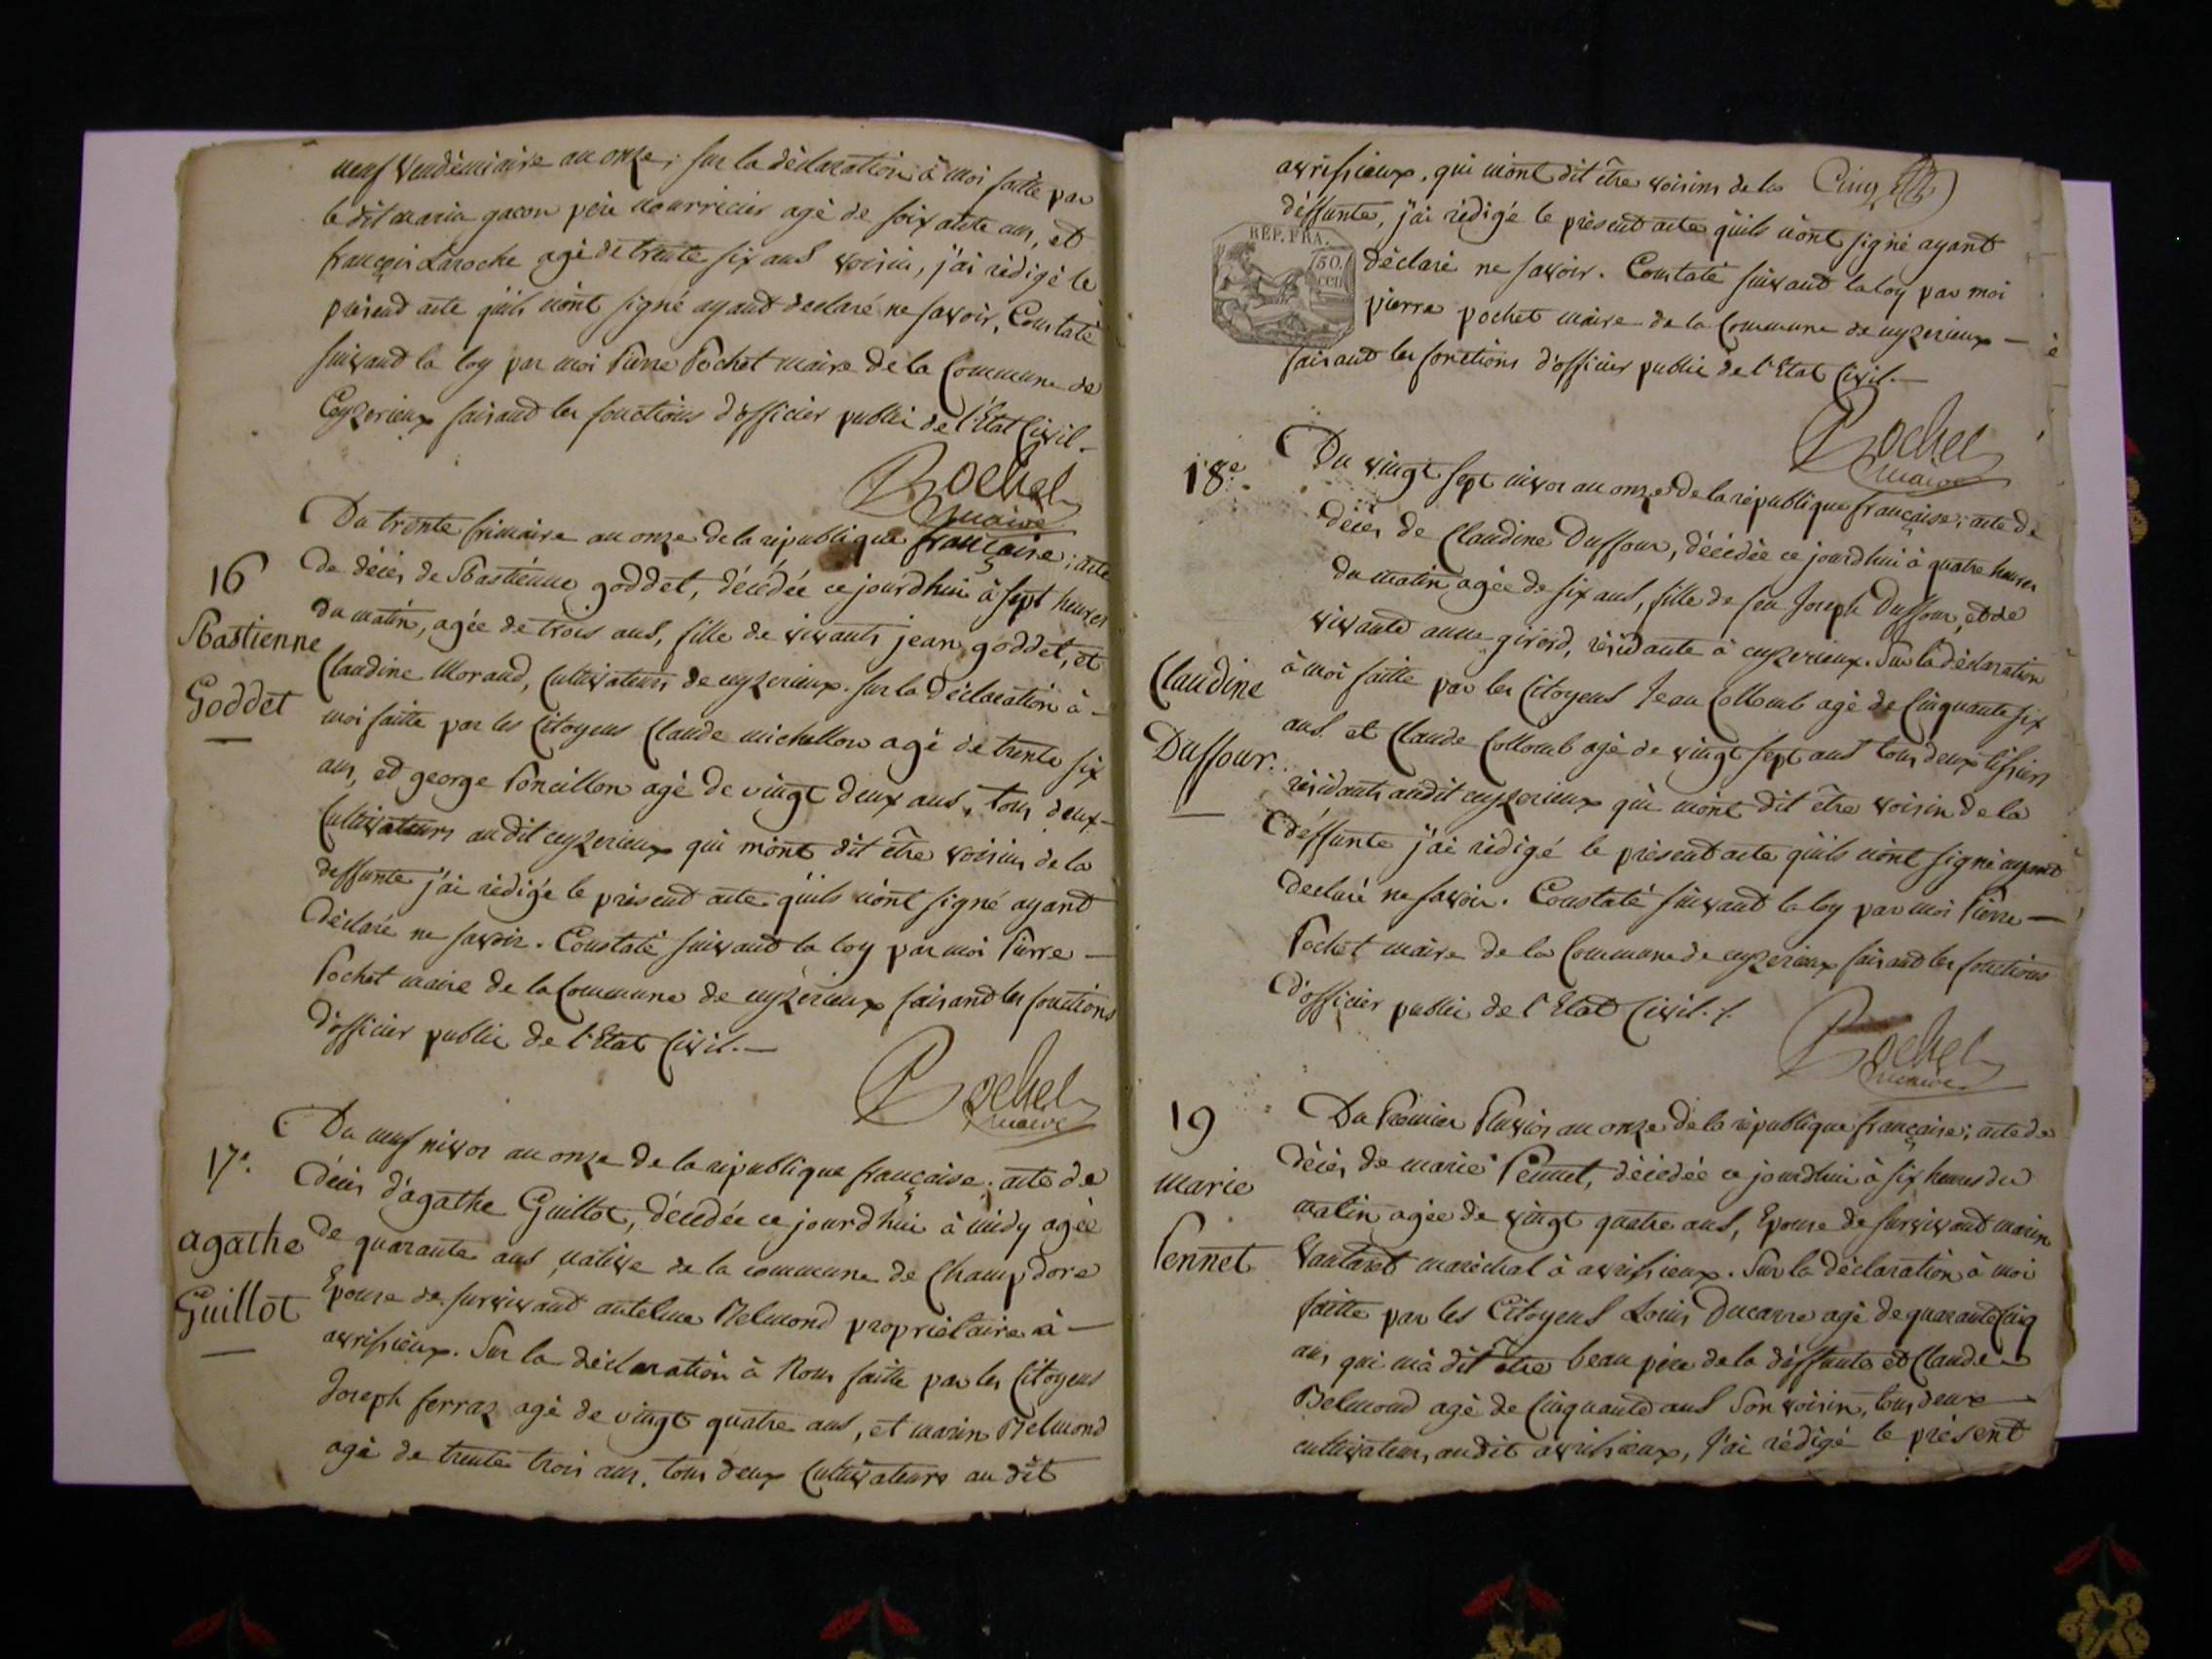 neuf Vendémiaire an onze; sur la déclaration à moi faitte par
le dit marin gacon père nourricier agé de soixante ans, et
françois Laroche agé de trente six ans voisin, j'ai rédigé le
présend acte quils n'ont signé ayand declaré ne savoir, Constaté
suivand la loy par moi Pierre Pochet maire de la Commune de
Ceyzerieux faisand les fonctions d'officier public de l'Etat Civil.
Pochet
maire
Du trente frimaire an onze de la république française; acte
16 De décès de Bastienne goddet, décédée ce jourdhui à sept heures
Bastienne du matin, agée de trois ans, fille de vivants jean goddet, et
Goddet Claudine Morand, Cultivateurs de ceyzerieux. sur la Déclaration à
moi faitte par les Citoyens Claude michellon agé de trente six
ans, et george Poncillon agé de vingt deux ans, tous deux
Cultivateurs au dit ceyzerieux qui m'ont dit être voisins de la
deffunte j'ai rédigée le présend acte quils n'ont signé ayand
Déclaré ne savoir. Constaté suivand la loy par moi Pierre
Pochet maire de la Commune de ceyzerieux faisand les fonctions
d'officier public de l'Etat Civil.
Pochet
maire
17e. Du neuf nivos an onze de la république française; acte de
Décès d'agathe Guillot, décédée ce jourd'hui à midy agée
agathe de quarante ans native de la commune de Champdore
Guillot Epouse de survivand antelme Belmond propriétaire à
avrissieux. Sur la déclaration à Nous faitte par les Citoyens
Joseph ferraz agé de vingt quatre ans, et marin Belmond
agé de trente trois ans, tous deux Cultivateurs au dit
avrissieux, qui m'ont dit être voisins de la Cinq
déffunte, j'ai rédigé le présend acte quils n'ont signé ayand
REP. FRA.
50. cen
déclaré ne savoir. Constaté suivand la loy par moi
pierre pochet maire de la Commune de ceyzerieux
faisand les fonctions d'officier public de l'Etat Civil.
Pochet
maire
18e. Du vingt sept nivos an onze de la république française; acte de
décès de Claudine Duffour, décédée ce jourdhui à quatre heures
du matin agée de six ans, fille de feu Joseph Duffour, et de
vivante anne girord, résidante à ceyzerieux. Sur la déclaration
Claudine à moi faitte par les Citoyens Jean Collomb agé de Cinquante six
Duffour. ans et Claude Collomb agé de vingt sept ans tous deux tissiers
résidants audit ceyzerieux qui m'ont dit être voisin de la
Déffunte j'ai rédigé le présend acte quils n'ont signé ayand
declaré ne savoir. Constaté suivand la loy par moi Pierre
Pochet maire de la Commune de ceyzerieux faisand les fonctions
D'officier public de l'Etat Civil.
Pochet
maire
19 Du Premier Pluvios an onze de la république française; acte de
marie décès de marie Pennet, décédée ce jourdhui à six heures du
matin agée de vingt quatre ans, Epouse de survivand marin
Pennet Vautaret maréchal à avrissieux. Sur la déclaration à moi
faitte par les Citoyens Louis Ducarre agé de quarante Cinq
ans qui m'a dit être beau père de la déffunte et Claude
Belmond agé de Cinquante ans Son voisin, tous deux
cultivateurs audit avrissieux, J'ai rédigé le présent